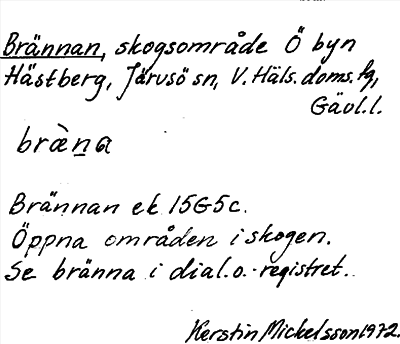 Brännan, skogsområde Ö byn
Hästberg, Järvsö sn, V. Häls. doms. fg,
Gävl. l.
bræ̀n̲a
Brännan ek 15G5c.
Öppna områden i skogen.
Se bränna i dial.o.-registret.
Kerstin Mickelsson 1972.